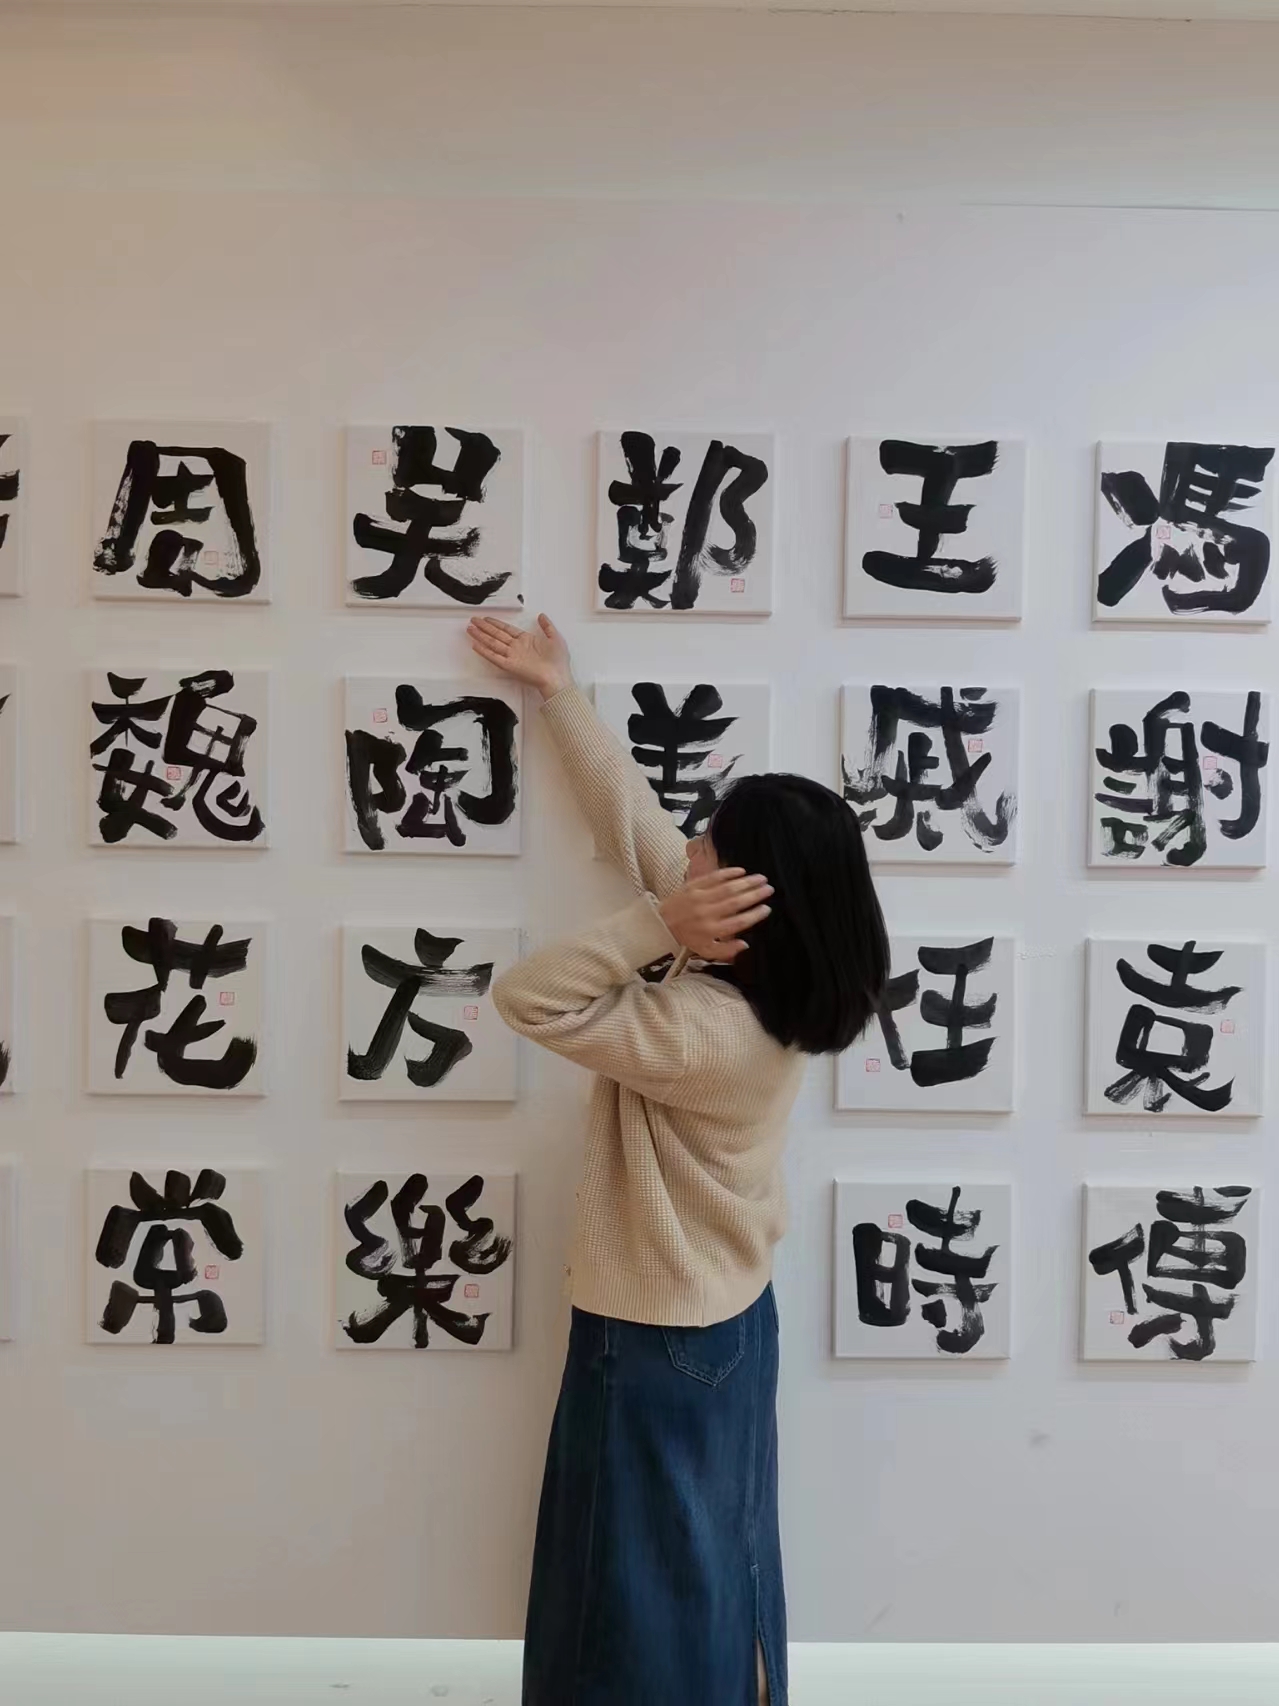 周 吴 鄭 王 馮
魏 陶 戚 謝
花 方 任 袁
常 樂 時 傅